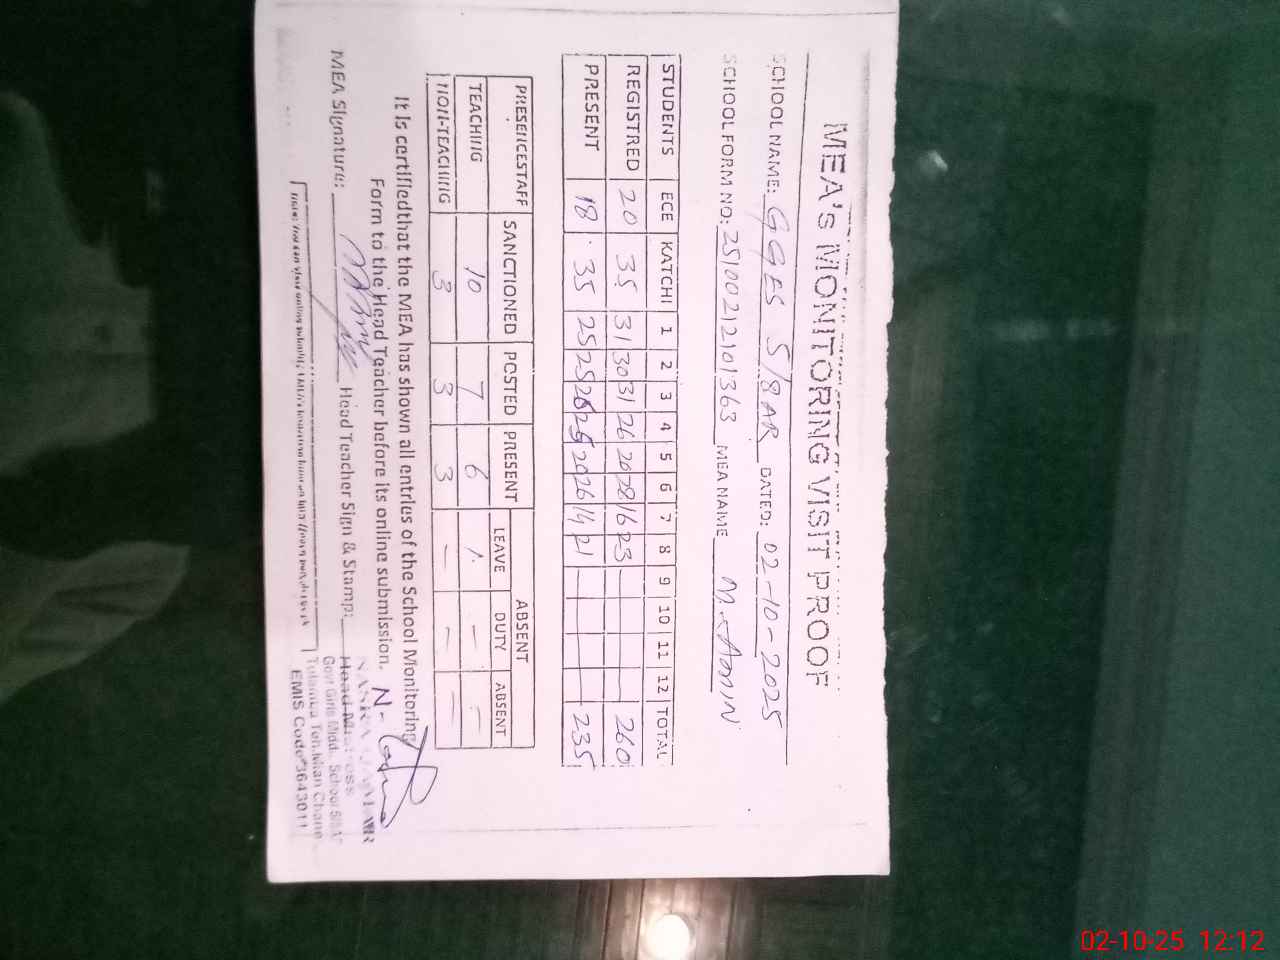 MEA's MONITORING VISIT PROOF
SCHOOL NAME: GGES 5/8AR DATED: 02-10-2025
SCHOOL FORM NO: 25100212101363 MEA NAME M. Amin
STUDENTS ECE KATCHI 1 2 3 4 5 6 7 8 9 10 11 12 TOTAL
REGISTRED 20 35 31 30 31 26 20 28 16 23 260
PRESENT 18 35 25 25 26 25 20 26 14 21 235
PRESENCESTAFF SANCTIONED POSTED PRESENT ABSENT
LEAVE DUTY ABSENT
TEACHING 10 7 6 1 - -
NON-TEACHING 3 3 3 - - -
It Is certifiedthat the MEA has shown all entries of the School Monitoring
Form to the Head Teacher before its online submission.
MEA Signature: Head Teacher Sign & Stamp:
Head Mistress
Govt Girls Middle School 5/8AR
Tulamba Teh.Mian Chann
EMIS Code
02-10-25 12:12